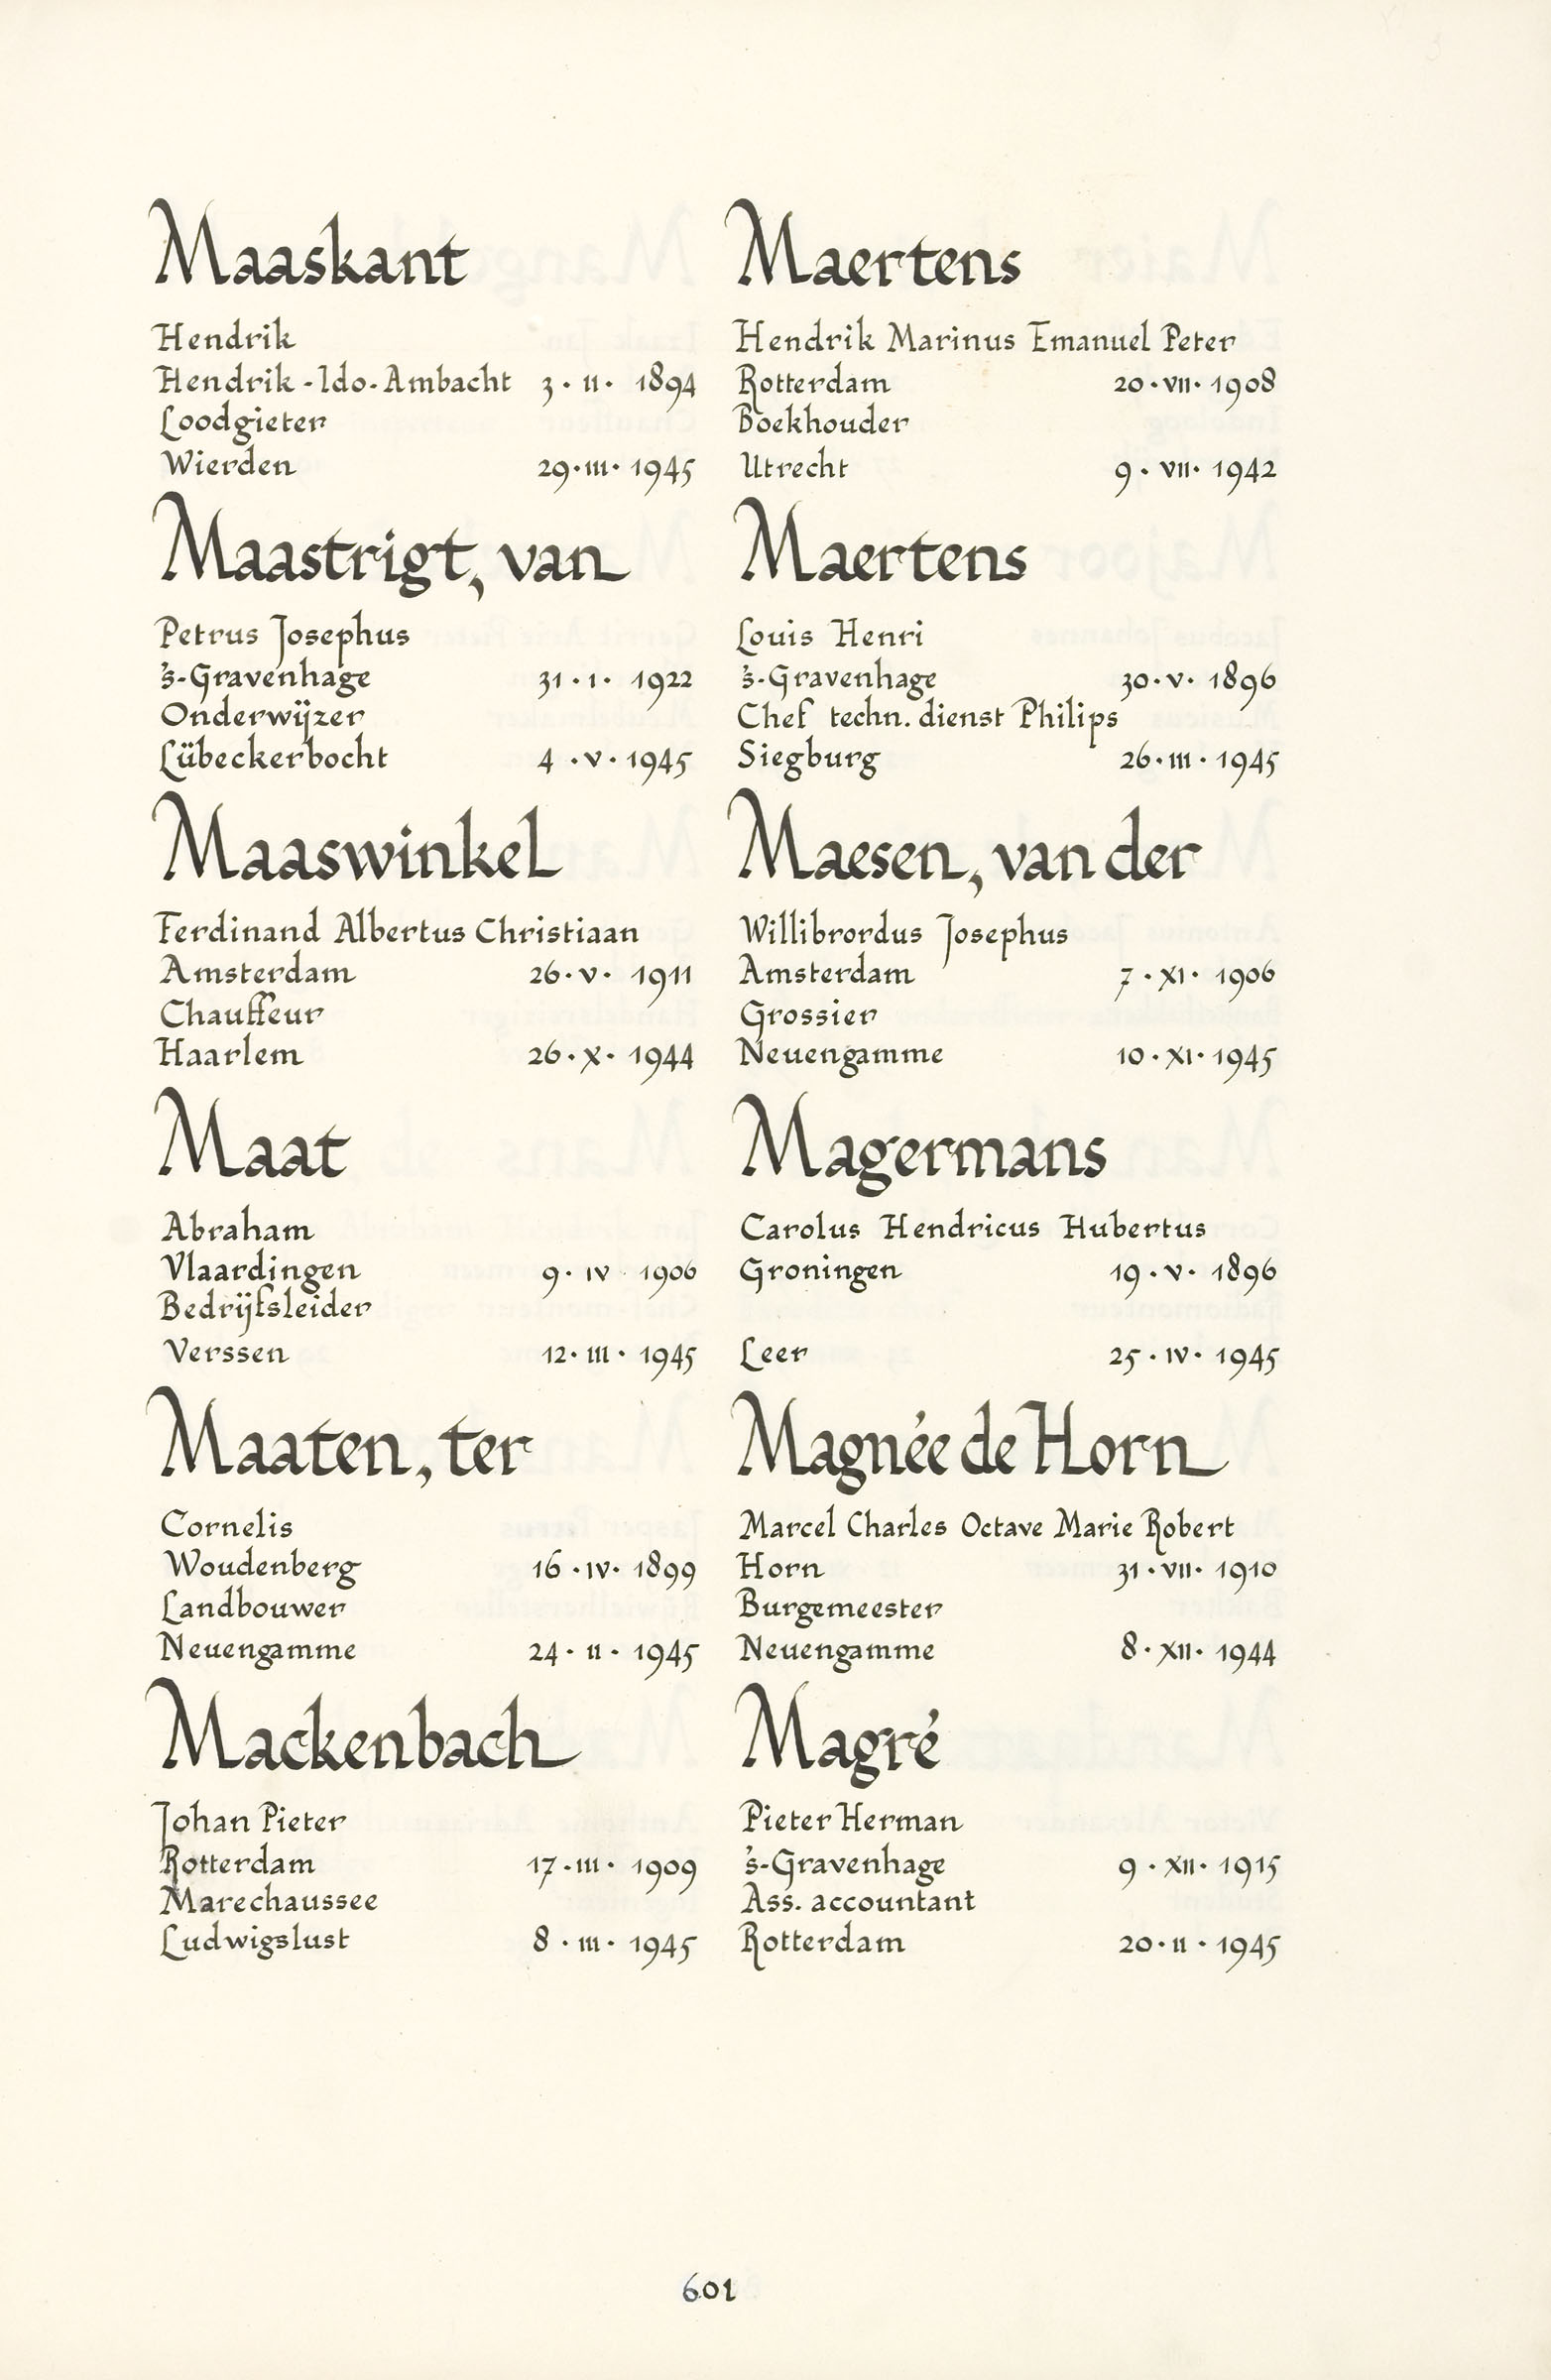 Maaskant
Hendrik
Hendrik-Ido-Ambacht 3 · II · 1894
Loodgieter
Wierden 29 · III · 1945
Maastrigt, van
Petrus Josephus
's-Gravenhage 31 · I · 1922
Onderwijzer
Lübeckerbocht 4 · V · 1945
Maaswinkel
Ferdinand Albertus Christiaan
Amsterdam 26 · V · 1911
Chauffeur
Haarlem 26 · X · 1944
Maat
Abraham
Vlaardingen 9 · IV · 1906
Bedrijfsleider
Verssen 12 · III · 1945
Maaten, ter
Cornelis
Woudenberg 16 · IV · 1899
Landbouwer
Neuengamme 24 · II · 1945
Mackenbach
Johan Pieter
Rotterdam 17 · III · 1909
Marechaussee
Ludwigslust 8 · III · 1945
Maertens
Hendrik Marinus Emanuel Peter
Rotterdam 20 · VII · 1908
Boekhouder
Utrecht 9 · VII · 1942
Maertens
Louis Henri
's-Gravenhage 30 · V · 1896
Chef techn. dienst Philips
Siegburg 26 · III · 1945
Maesen, van der
Willibrordus Josephus
Amsterdam 7 · XI · 1906
Grossier
Neuengamme 10 · XI · 1945
Magermans
Carolus Hendricus Hubertus
Groningen 19 · V · 1896
Leer 25 · IV · 1945
Magnée de Horn
Marcel Charles Octave Marie Robert
Horn 31 · VII · 1910
Burgemeester
Neuengamme 8 · XII · 1944
Magré
Pieter Herman
's-Gravenhage 9 · XII · 1915
Ass. accountant
Rotterdam 20 · II · 1945
601